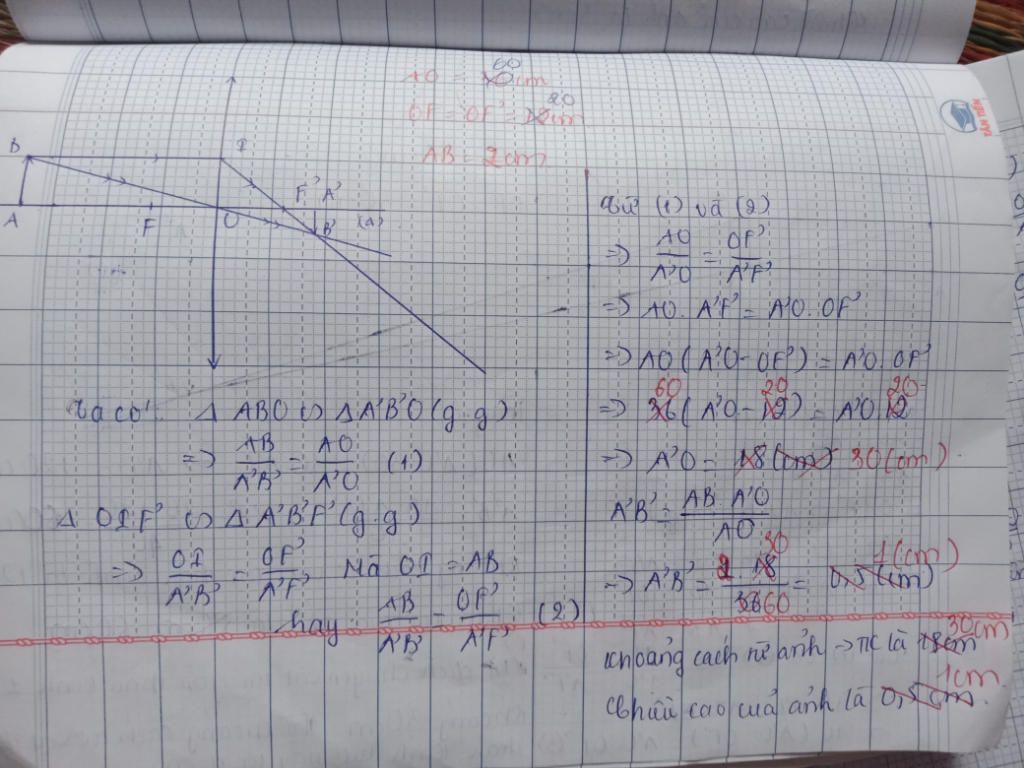 AO = 60cm
OF = OF' = 20cm
AB = 2cm
B I
F' A'
A F O B' (Δ)
Ta có: Δ ABO ∽ Δ A'B'O (g.g)
=> AB/A'B' = AO/A'O (1)
Δ OIF' ∽ Δ A'B'F' (g.g)
=> OI/A'B' = OF'/A'F' Mà OI = AB
hay AB/A'B' = OF'/A'F' (2)
Từ (1) và (2)
=> AO/A'O = OF'/A'F'
=> AO. A'F' = A'O. OF'
=> AO (A'O - OF') = A'O. OF'
=> 60 (A'O - 20) = A'O 20
=> A'O = 30 (cm)
A'B' = AB A'O/AO
=> A'B' = 2 30/60 = 1 (cm)
Khoảng cách từ ảnh -> TK là 30cm
Chiều cao của ảnh là 1cm
TÂN TIẾN